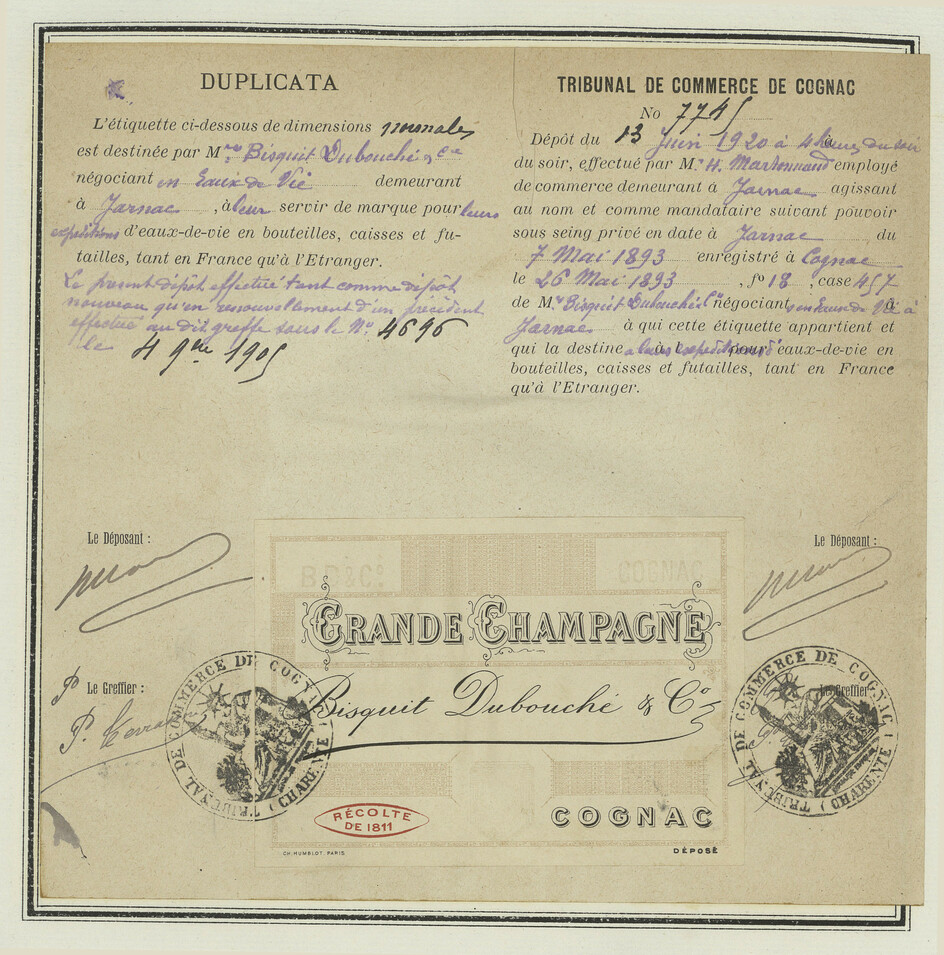 DUPLICATA
L'étiquette ci-dessous de dimensions normales
est destinée par Mrs Bisquit Dubouché & Cie
négociant en Eaux de Vie demeurant
à Jarnac, à leur servir de marque pour leurs
expéditions d'eaux-de-vie en bouteilles, caisses et fu-
tailles, tant en France qu'à l'Etranger.
Le présent dépôt effectué tant comme dépôt
nouveau qu'en renouvellement d'un précédent
effectué au dit greffe sous le No 4696
le 4 9bre 1905
TRIBUNAL DE COMMERCE DE COGNAC
No 7745
Dépôt du 13 Juin 1920 à 4 heures du soir
du soir, effectué par Mr H. employé
de commerce demeurant à Jarnac agissant
au nom et comme mandataire suivant pouvoir
sous seing privé en date à Jarnac du
7 Mai 1893 enregistré à Cognac
le 26 Mai 1893, fo 18, case 457
de Mrs Bisquit Dubouché & Cie négociants en Eaux de Vie à
Jarnac à qui cette étiquette appartient et
qui la destine à leurs expéditions d'eaux-de-vie en
bouteilles, caisses et futailles, tant en France
qu'à l'Etranger.
Le Déposant :
Le Déposant :
Po Le Greffier :
Le Greffier
B.D & Co
COGNAC
GRANDE CHAMPAGNE
Bisquit Dubouché & Co
RÉCOLTE
DE 1811
COGNAC
CH. HUMBLOT. PARIS
DÉPOSÉ
TRIBUNAL DE COMMERCE DE COGNAC (CHARENTE)
TRIBUNAL DE COMMERCE DE COGNAC (CHARENTE)